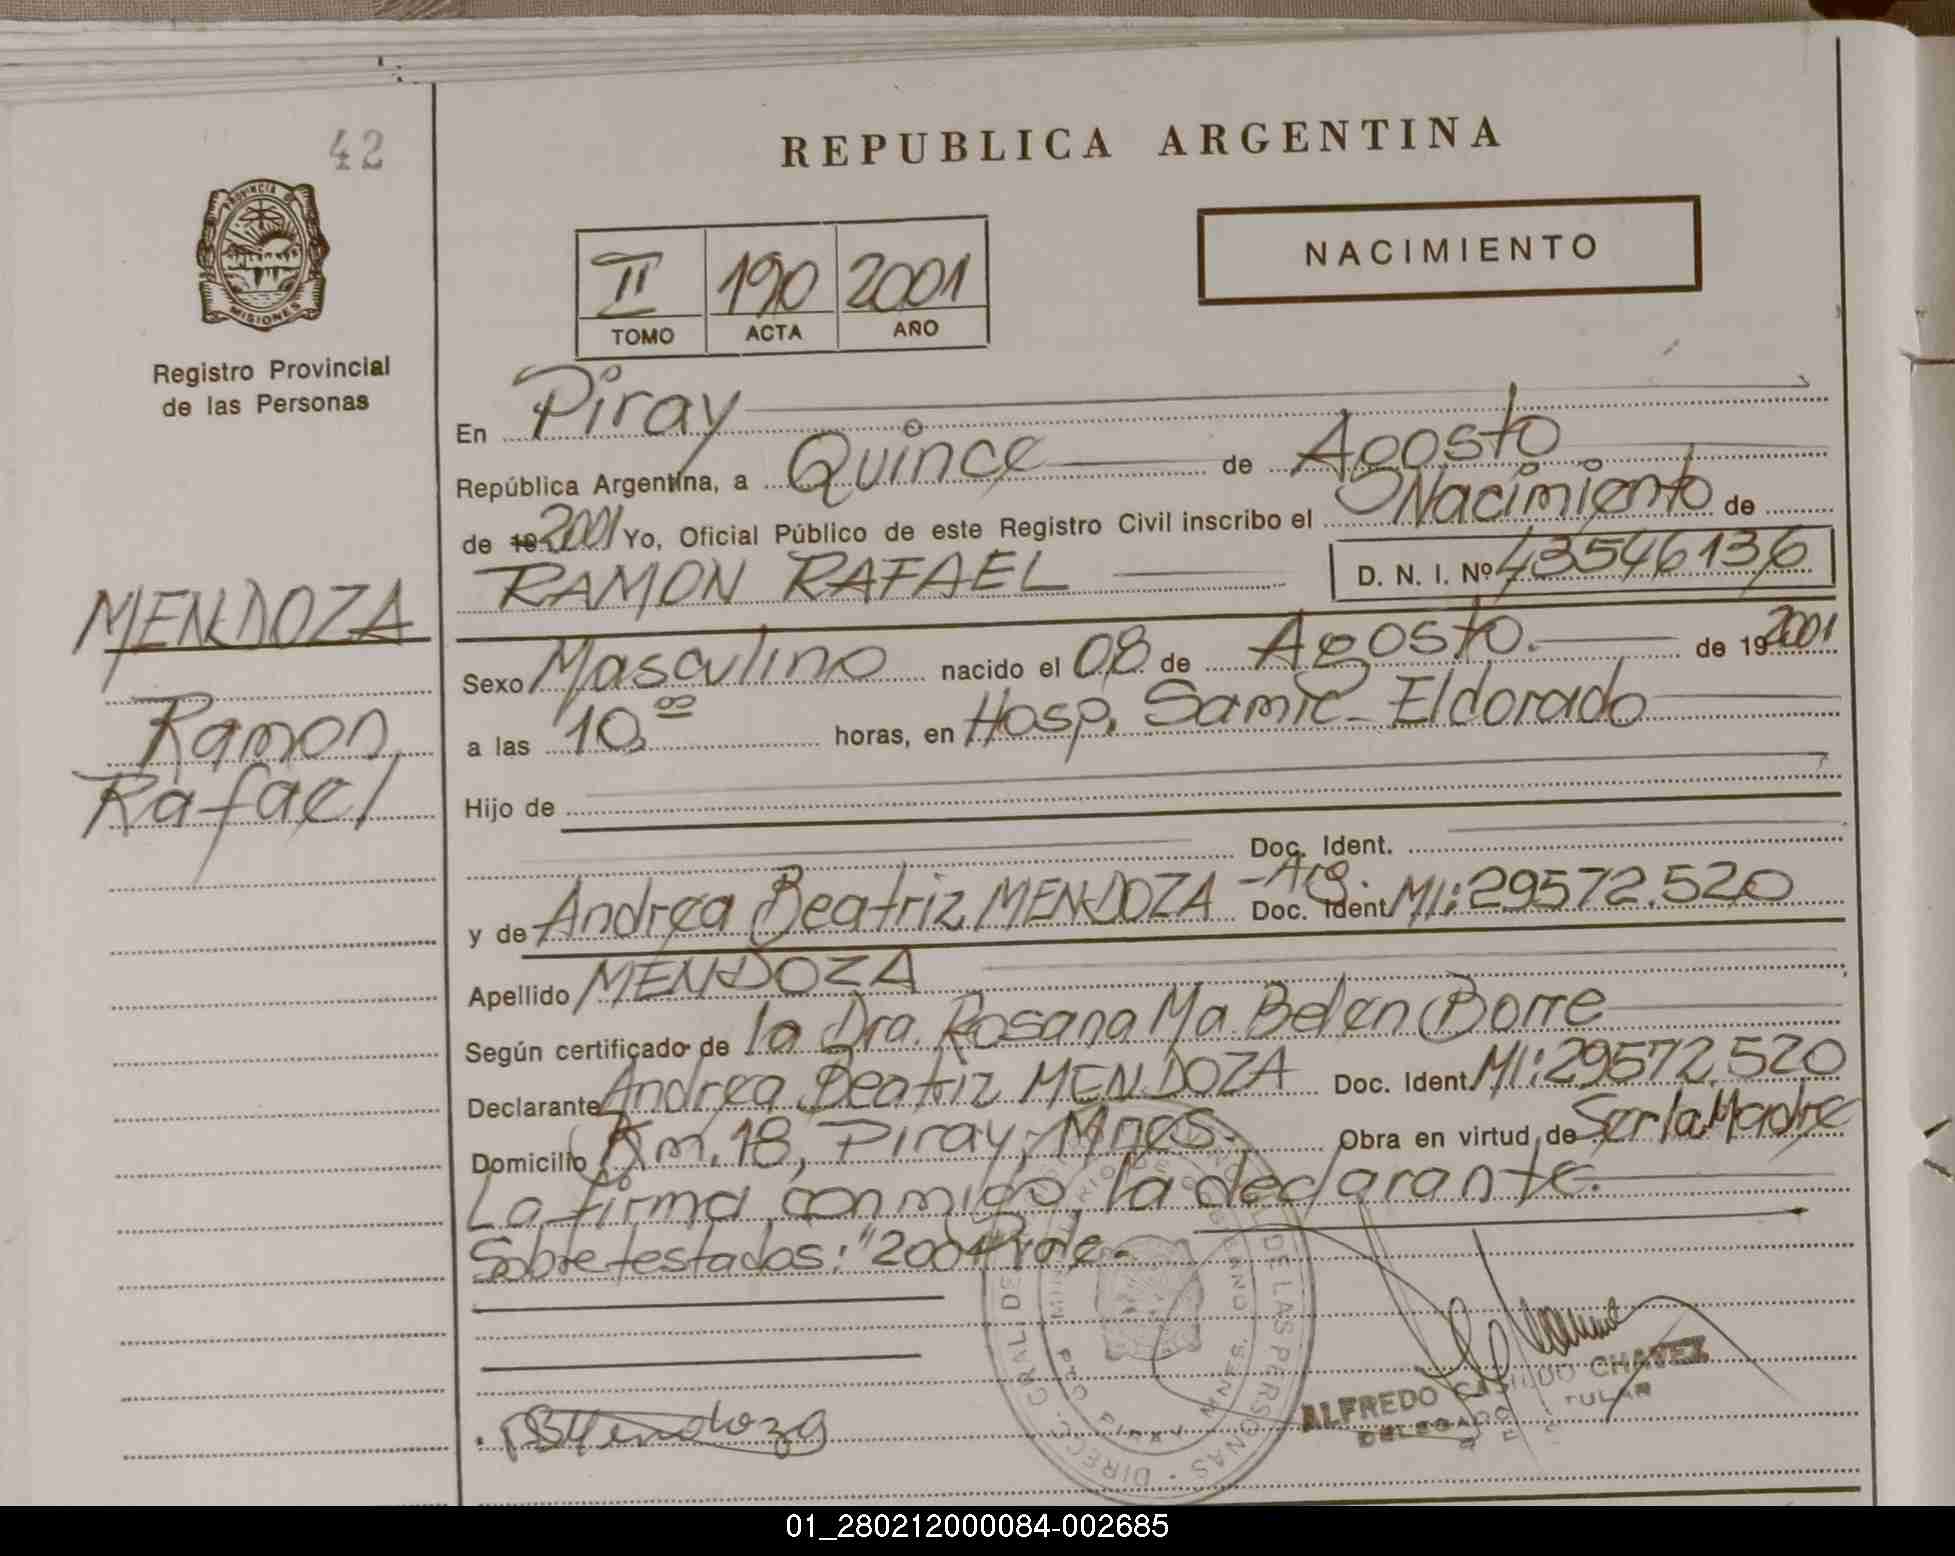 42
REPUBLICA ARGENTINA
PROVINCIA DE
MISIONES
Registro Provincial
de las Personas
II 190 2001
TOMO ACTA AÑO
NACIMIENTO
En Piray
República Argentina, a Quince de Agosto
de 19 2001 Yo, Oficial Público de este Registro Civil inscribo el Nacimiento de
RAMON RAFAEL D. N. I. Nº 43546136
MENDOZA
Ramon
Rafael
Sexo Masculino nacido el 08 de Agosto. de 19 2001
a las 10,00 horas, en Hosp. Samic - Eldorado
Hijo de
Doc. Ident.
y de Andrea Beatriz MENDOZA - Arg. Doc. Ident MI: 29572.520
Apellido MENDOZA
Según certificado de la Dra. Rosana Ma. Belen Borre
Declarante Andrea Beatriz MENDOZA Doc. Ident. MI: 29572.520
Domicilio Km. 18, Piray, Mnes. Obra en virtud de Ser la Madre
La firma conmigo, la declarante.
Sobretestados: "2001" Vale.
DIRECC. GRAL DE LAS PERSONAS
PTO PIRAY MNES.
ABMendoza
ALFREDO CASILDO CHAVEZ
DELEGADO TITULAR
01_280212000084-002685